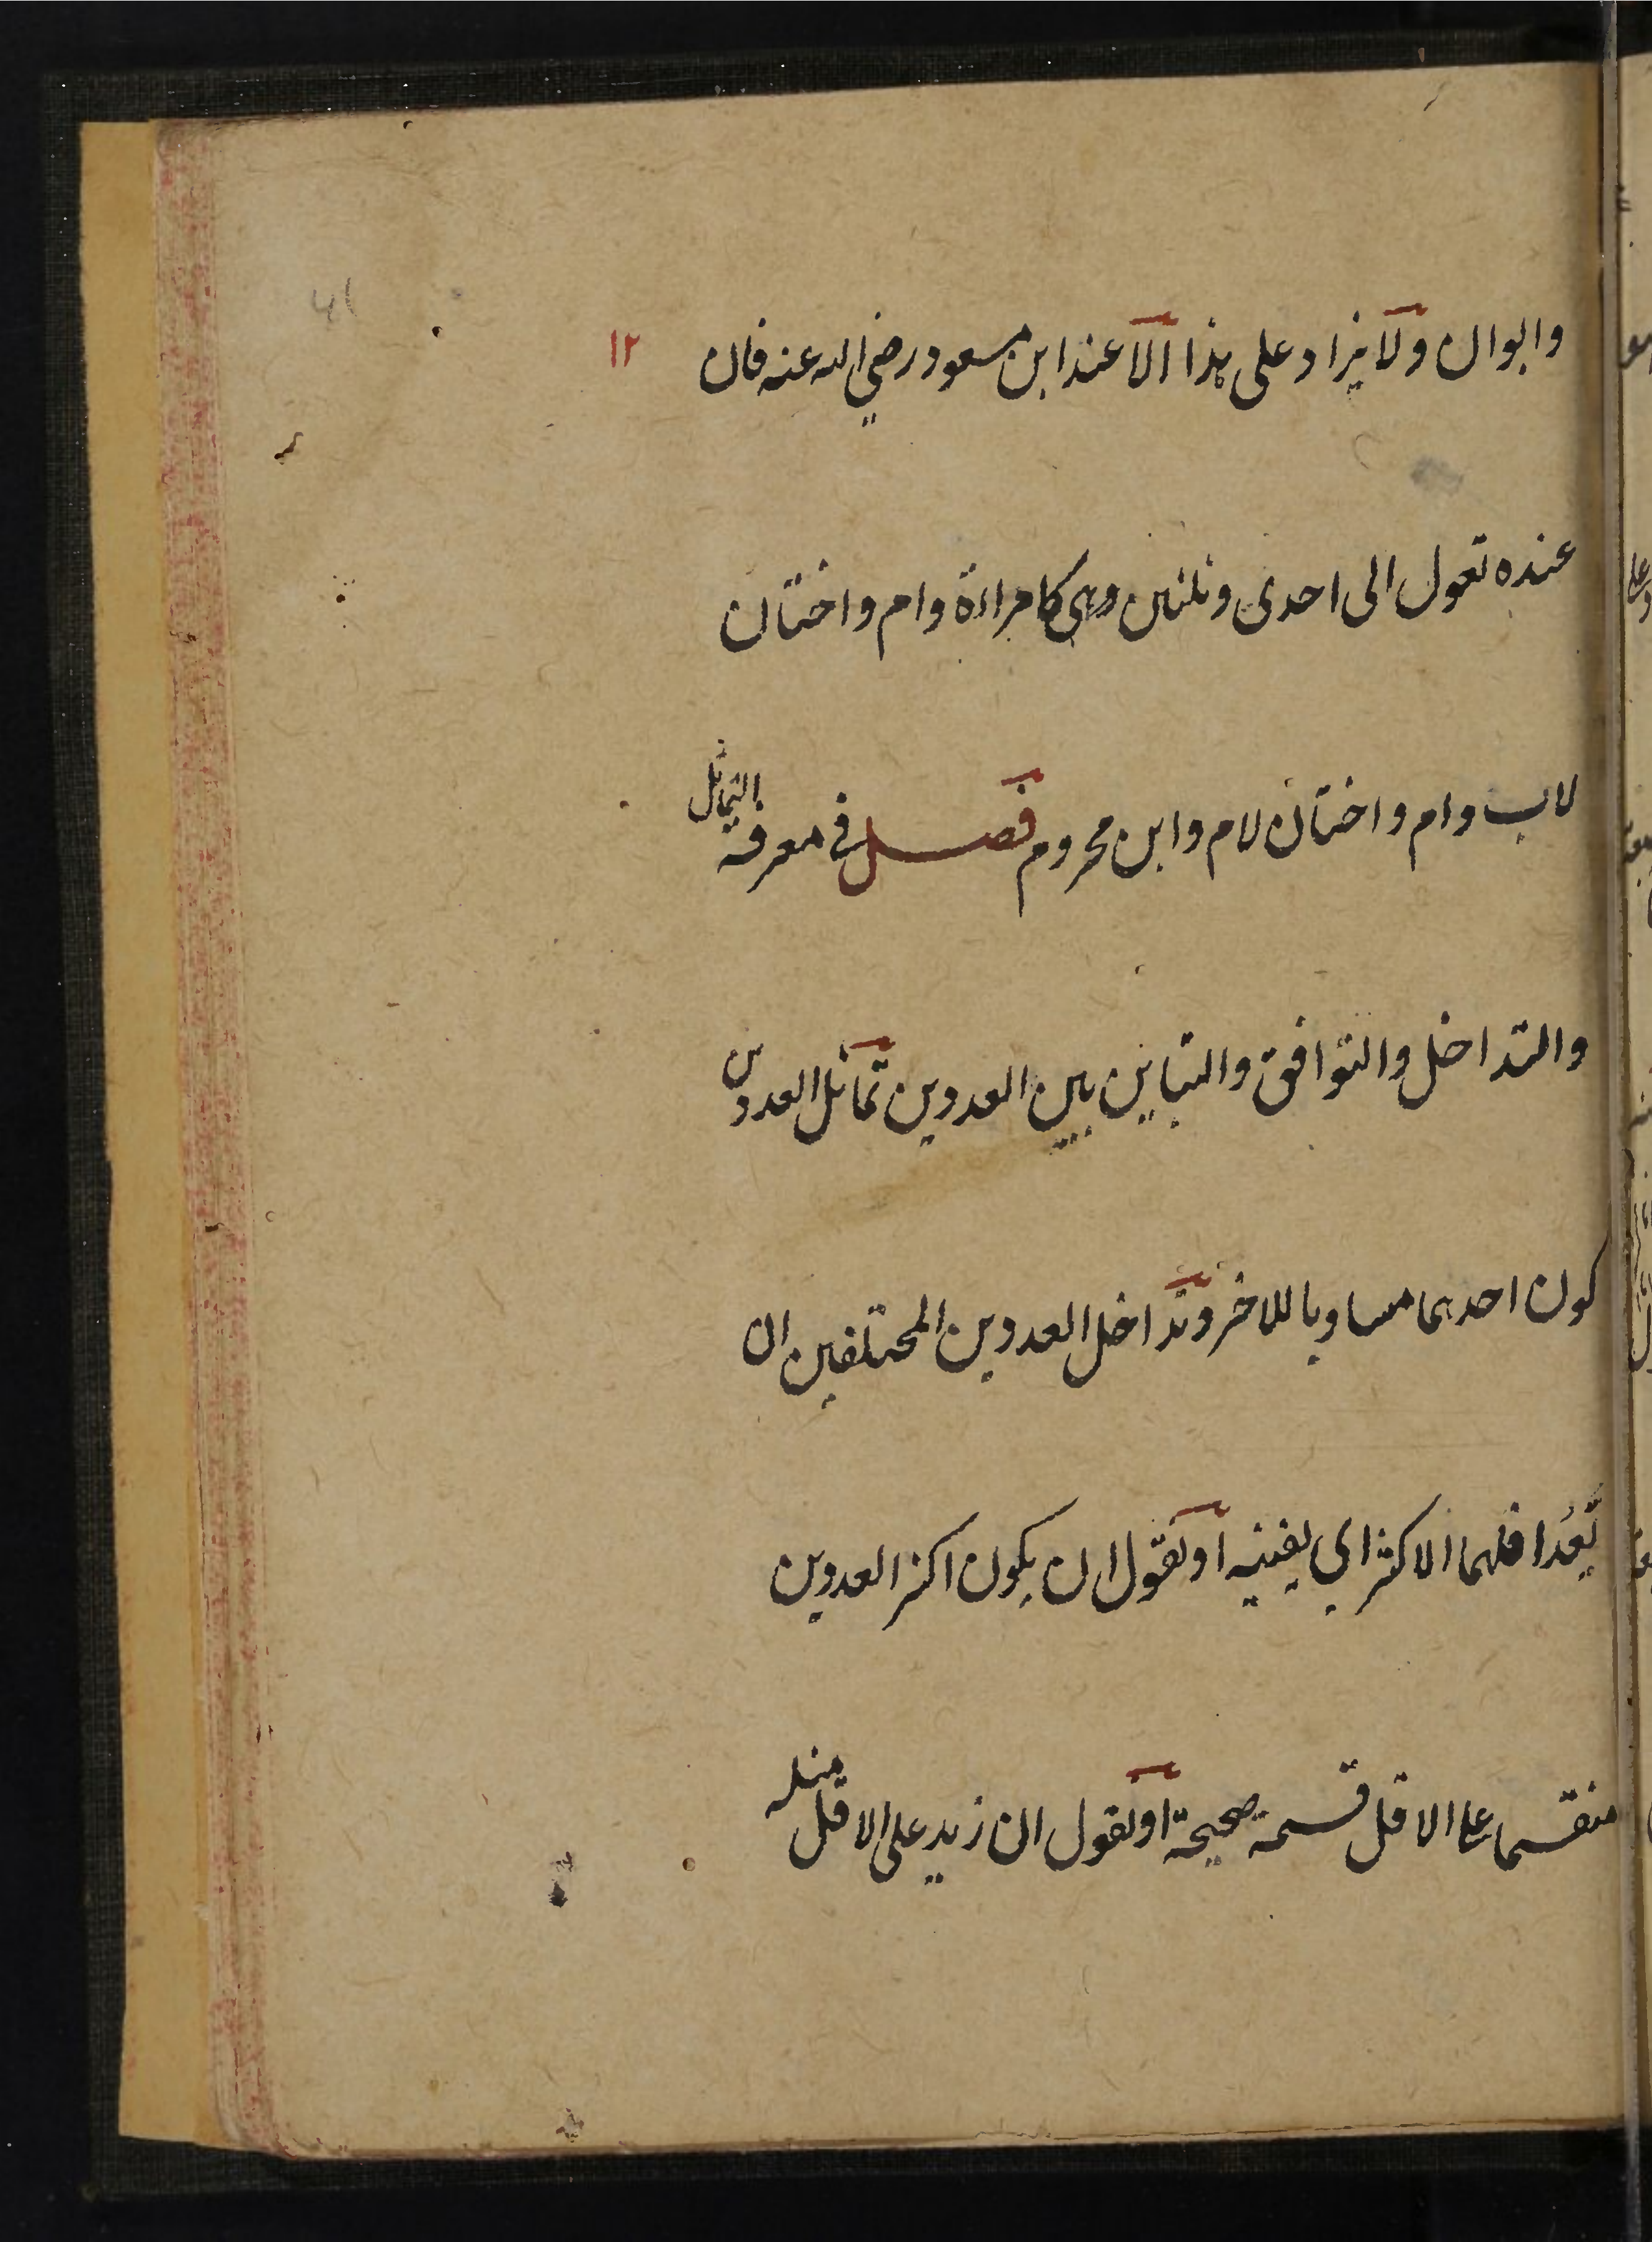 وابوان ولا يزاد على هذا الا عند ابن مسعود رضي الله عنه فان ١٢
عنده تعول الى احدى وثلثين وهي كامراءة وام واختان
لاب وام واختان لام وابن محروم فصل في معرفة التماثل
والتداخل والتوافق والتباين بين العددين تماثل العددين
كون احدهما مساويا للاخر وتداخل العددين المختلفين ان
يَعُدّ اقلهما الاكثر اي يفنيه او نقول ان يكون اكثر العددين
منقسما على الاقل قسمة صحيحة او نقول ان زيد على الاقل مثله